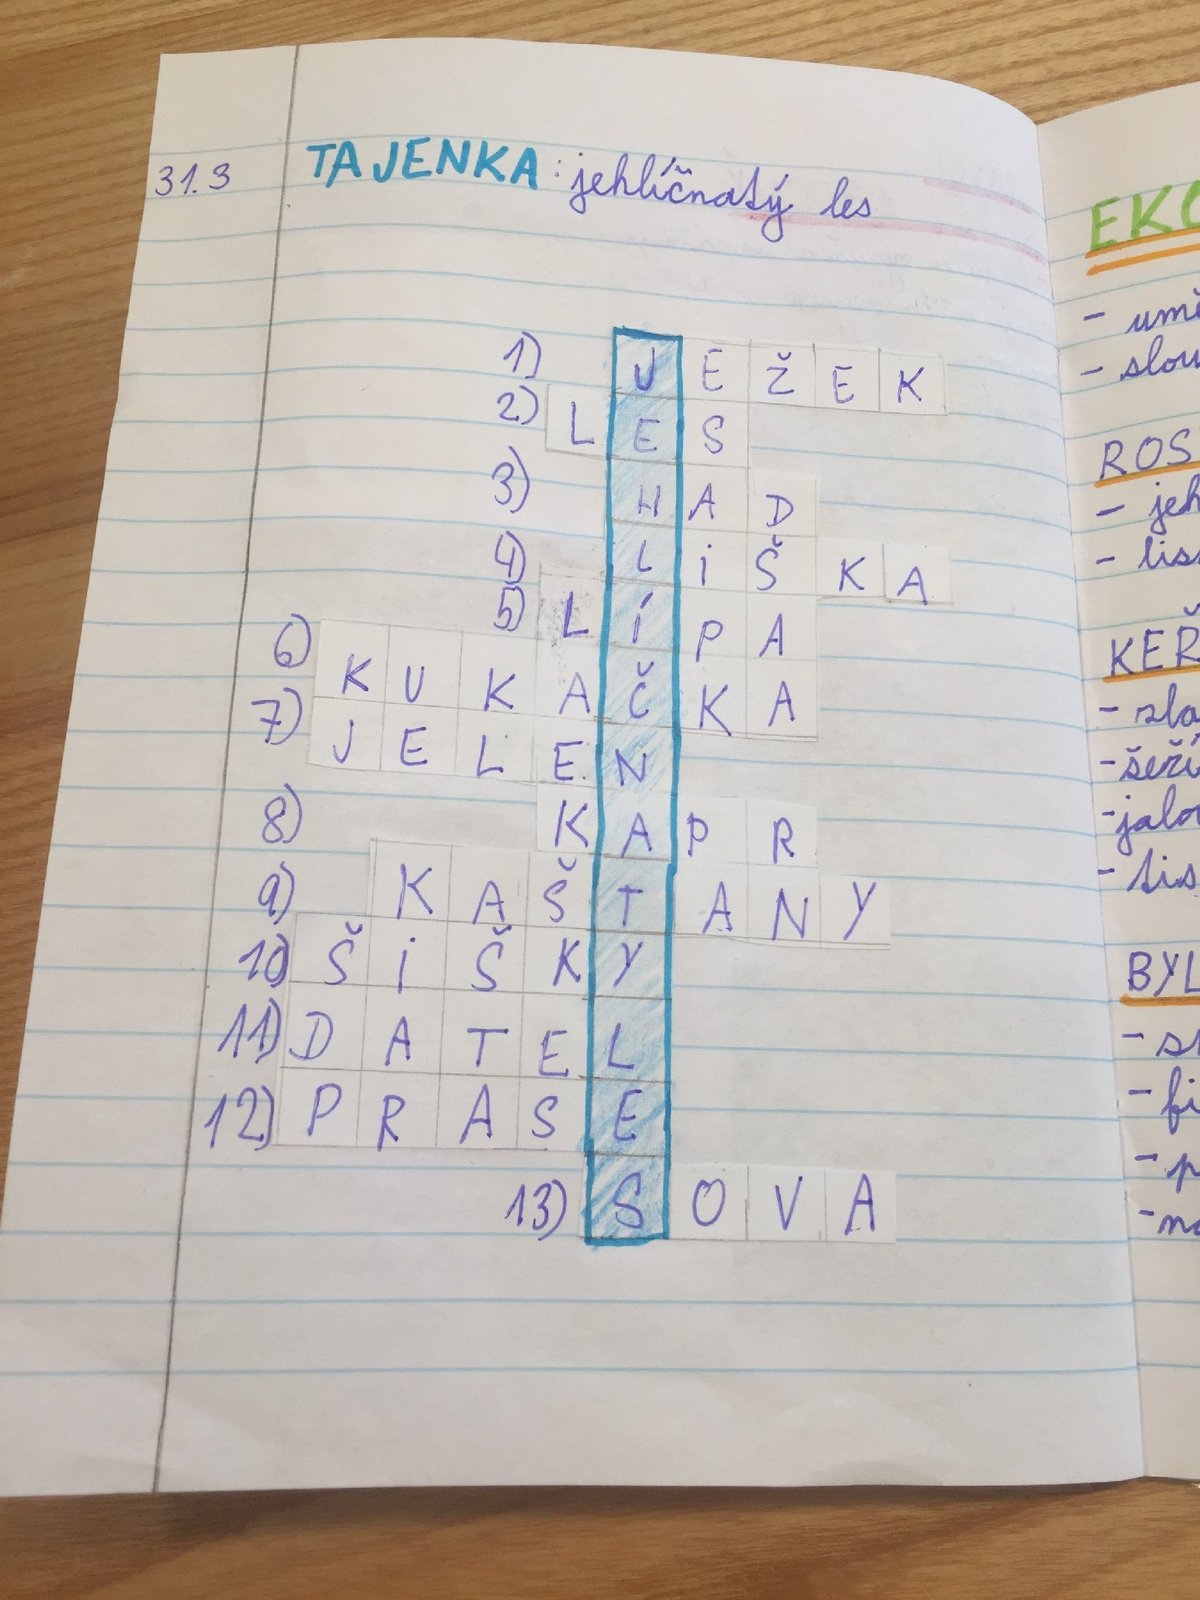 31.3
TAJENKA: jehlíčnatý les
1) JEŽEK
2) LES
3) HAD
4) LIŠKA
5) LÍPA
6) KUKAČKA
7) JELEN
8) KAPR
9) KAŠTANY
10) ŠIŠKY
11) DATEL
12) PRASE
13) SOVA
EKO
- umě
- slou
ROS
- jeh
- lis
KEŘ
- zla
- šeří
- jalo
- tis
BYL
- st
- fi
- p